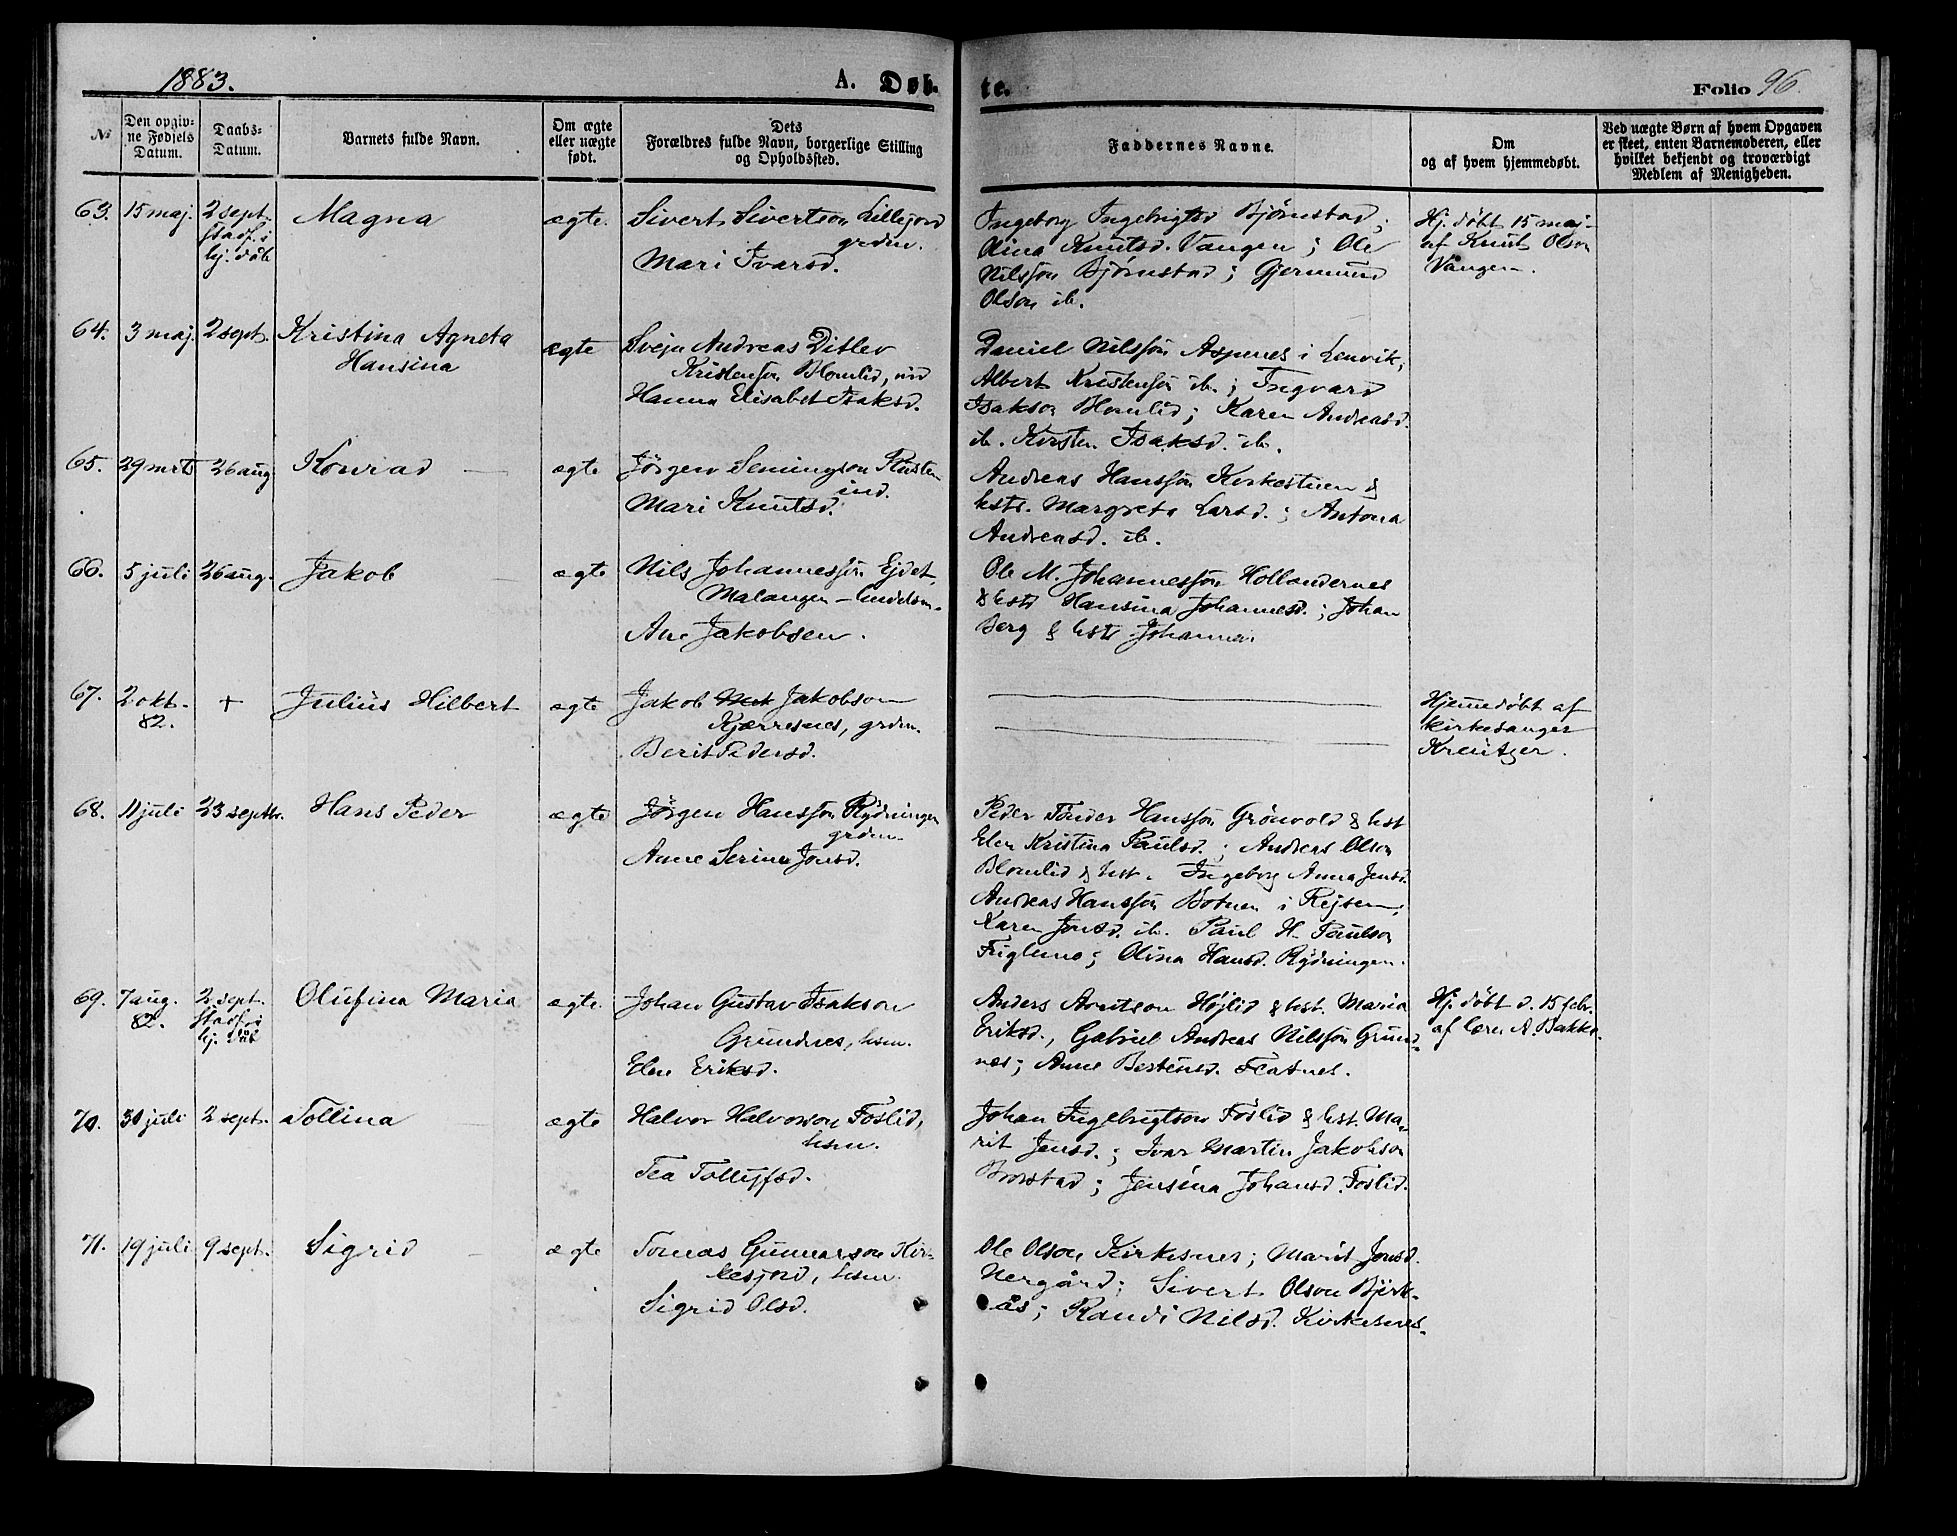 1883.
A. Døb-
te.
Folio 96.
№
Den opgiv-
ne Fødsels
Datum.
Daabs-
Datum.
Barnets fulde Navn.
Om ægte
eller uægte
født.
Dets
Forældres fulde Navn, borgerlige Stilling
og Opholdssted.
Faddernes Navne.
Om
og af hvem hjemmedøbt.
Ved uægte Børn af hvem Opgaven
er skeet, enten Barnemoderen, eller
hvilket bekjendt og troværdigt
Medlem af Menigheden.
63. 15 maj. 2 sept.
stadf. i
hj. døb
Magna
ægte.
Sivert Sivertson Lillejord
grdm.
Mari Ivarsd.
Ingeborg Ingebrigtsd Bjørnstad;
Olina Knutsd. Vangen; Ole
Nilssøn Bjørnstad; Gjermund
Olson ib.
Hj. døbt 15 maj
af Knut Olson
Vangen.
64. 3 maj. 2 sept.
Kristina Agneta
Hansina
ægte
Svejn Andreas Ditlev
Kristensøn Blomlid, ind
Hanna Elisabet Isaksd.
Daniel Nilssøn Aspenes i Lenvik,
Albert Kristensøn ib.; Ingvard
Isakson Blomlid; Karen Andreasd.
ib. Kirsten Isaksd. ib.
65. 29 mrts 26 aug
Konrad
ægte
Jørgen Semingson
ind.
Mari Knutsd.
Andreas Hanssøn Kirkestuen &
hstr. Margreta Larsd.; Antona
Andreasd. ib.
66. 5 juli 26 aug.
Jakob
ægte
Nils Johannessøn Ejdet,
Malangen - handelsm.
Ane Jakobsen.
Ole M. Johannessøn Hollendernes
& hstr Hansina Johannesd.; Johan
Berg & hstr Johanna.
67. 2 okt.
82.
+
Julius Hilbert
ægte
Jakob Jakobson
Kjærresnes, grdm.
Berit Pedersd.
Hjemmedøbt af
kirkesanger
Kreutzer.
68. 11 juli 23 septbr.
Hans Peder
ægte
Jørgen Hanssøn Rydningen
grdm.
Anne Serina Jonsd.
Peder Tønder Hanssøn Grønvold & hst
Elen Kristina Paulsd.; Andreas Olson
Blomlid & hst. Ingeborg Anna Jensd.
Andreas Hanssøn Botnen i Rejsen;
Karen Jonsd. ib. Paul H. Paulson
Fuglemo; Olina Hansd. Rydningen.
69. 7 aug.
82.
2 sept.
stadf. i
hj. døb
Olufina Maria
ægte
Johan Gustav Isakson
Grundnes, hsm.
Elen Eriksd.
Anders Arntson Højlid & hst. Maria
Eriksd., Gabriel Andreas Nilssøn Grund-
nes; Anne Bertensd. Flatnes.
Hj. døbt d. 15 febr.
af lærer A. Bakke.
70. 30 juli 2 sept.
Tollina
ægte
Halvor Halvorson Foslid,
hsm.
Tea Tollefsd.
Johan Ingebrigtson Foslid & hst. Ma-
rit Jensd.; Ivar Martin Jakobson
Brostad; Jensina Johansd. Foslid.
71. 19 juli 9 sept.
Sigrid
ægte
Tomas Gunnarson Kir-
kesjord, hsm.
Sigrid Olsd.
Ole Olson Kirkesnes; Marit Jonsd.
Nergård; Sivert Olson Bjørk-
ås; Randi Nilsd. Kirkesnes.